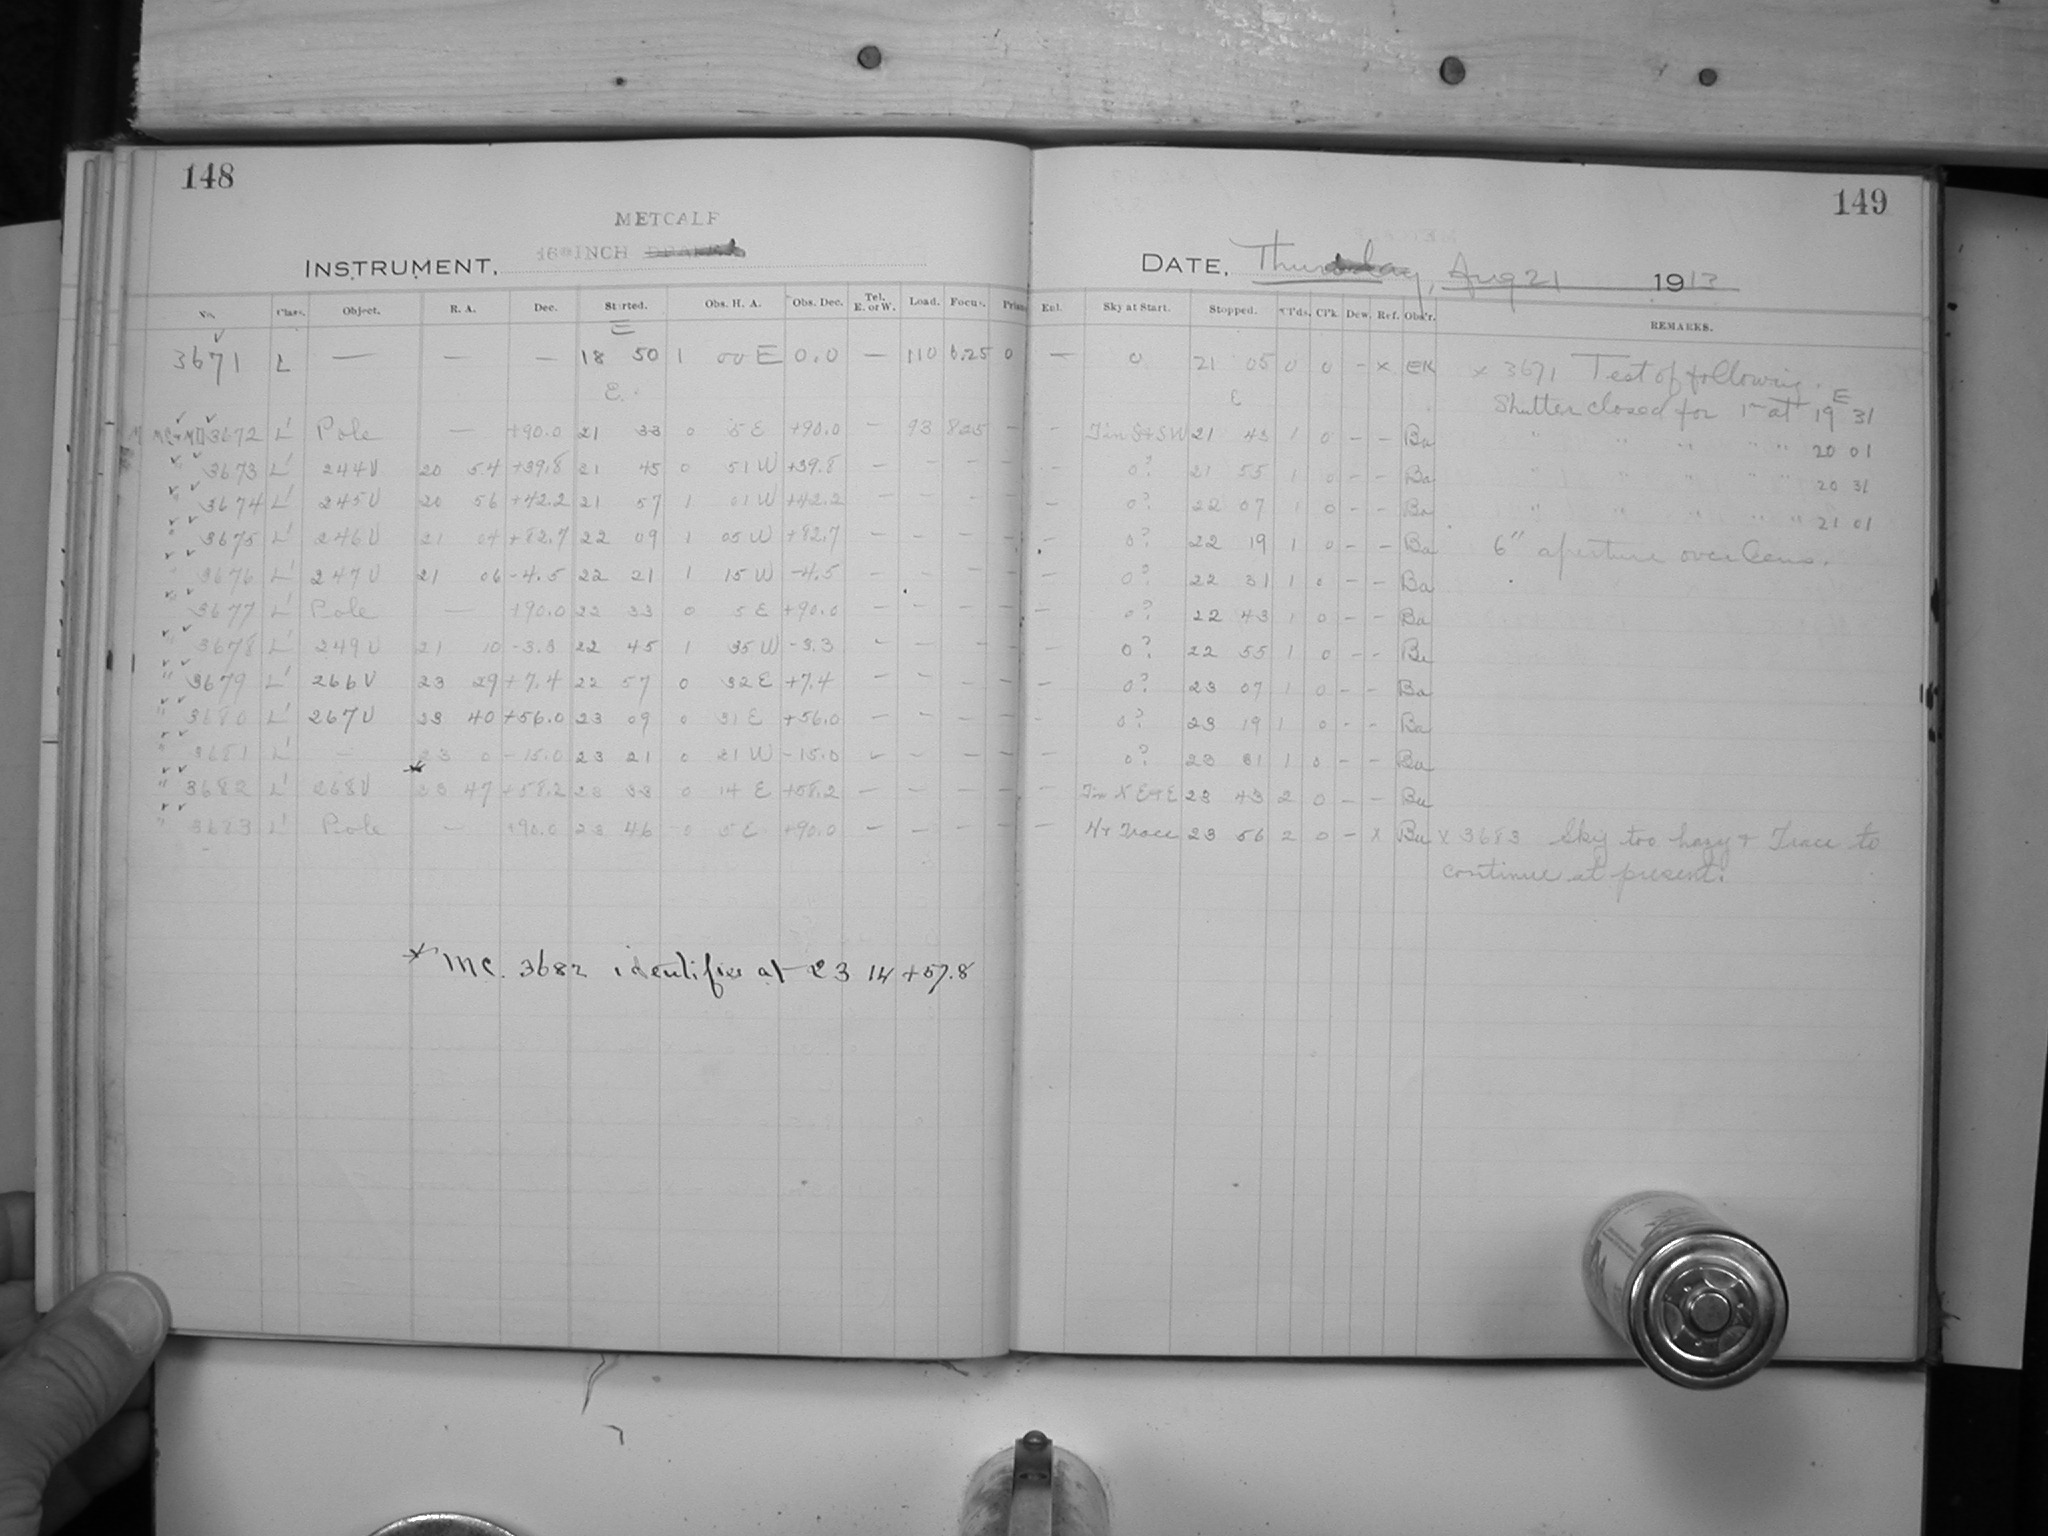 148
METCALF
INSTRUMENT, 16 INCH
No. Class. Object. R. A. Dec. Started. Obs. H. A. Obs. Dec. Tel. E. or W. Load. Focus. Prism
E
3671 L — — — 18 50 1 00 E 0.0 — 110 8.25 0
E.
3672 L' Pole — +90.0 21 33 0 5 E +90.0 — 93 825 —
" 3673 L' 244U 20 54 +39.8 21 45 0 51 W +39.8 — — — —
" 3674 L' 245U 20 56 +42.2 21 57 1 01 W +42.2 — — — —
" 3675 L' 246U 21 04 +82.7 22 09 1 05 W +82.7 — — — —
" 3676 L' 247U 21 06 -4.5 22 21 1 15 W -4.5 — — — —
" 3677 L' Pole — +90.0 22 33 0 5 E +90.0 — — — —
" 3678 L' 249U 21 10 -3.3 22 45 1 35 W -3.3 — — — —
" 3679 L' 266U 23 29 +7.4 22 57 0 32 E +7.4 — — — —
" 3680 L' 267U 23 40 +56.0 23 09 0 31 E +56.0 — — — —
" 3681 L' — 23 0 -15.0 23 21 0 21 W -15.0 — — — —
" 3682 L' 268U *23 47 +58.2 23 33 0 14 E +58.2 — — — —
" 3683 L' Pole — +90.0 23 46 0 5 E +90.0 — — — —
* MC. 3682 identifies at 23 14 +57.8
149
DATE, Thursday, Aug 21 1913
Ent. Sky at Start. Stopped. Cl'ds. Cl'k. Dew. Ref. Obs'r. REMARKS.
— 0 21 05 0 0 - x EK x 3671 Test of following.
E Shutter closed for 1m at 19 31 E
— S+SW 21 43 1 0 - - Ba " " " " " 20 01
— 0? 21 55 1 0 - - Ba " " " " " 20 31
— 0? 22 07 1 0 - - Ba " " " " " 21 01
— 0? 22 19 1 0 - - Ba 6" aperture over lens.
— 0? 22 31 1 0 - - Ba
— 0? 22 43 1 0 - - Ba
— 0? 22 55 1 0 - - Ba
— 0? 23 07 1 0 - - Ba
— 0? 23 19 1 0 - - Ba
— 0? 23 31 1 0 - - Ba
— 23 43 2 0 - - Ba
— 23 56 2 0 - x Ba x 3683 Sky too hazy + Trace to
continue at present.